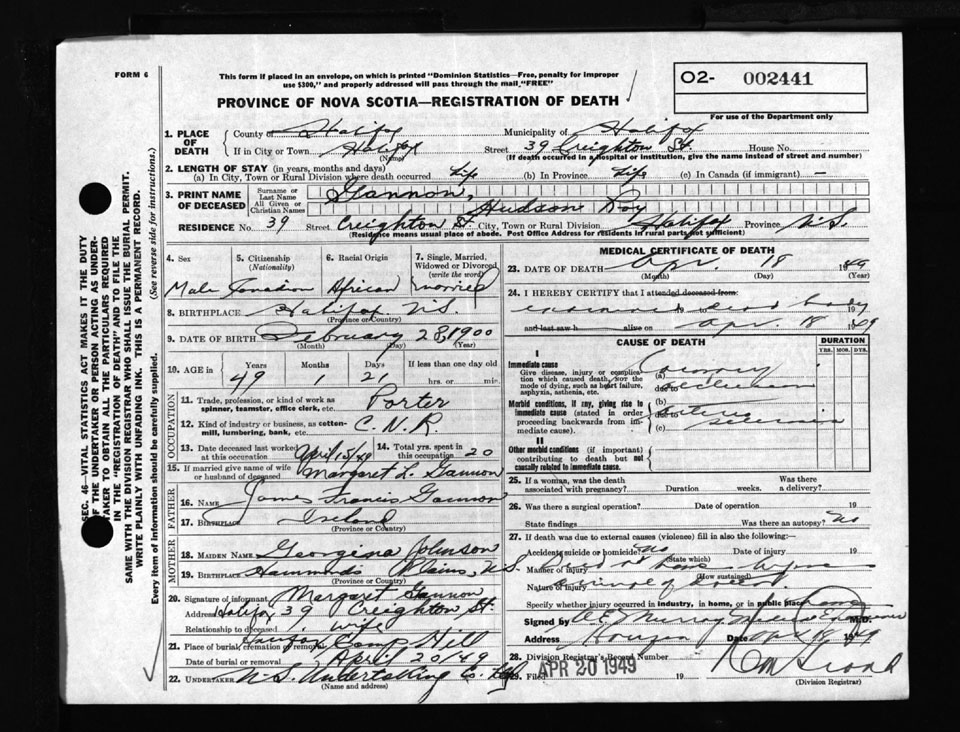 FORM 6
This form if placed in an envelope, on which is printed "Dominion Statistics—Free, penalty for improper
use $300," and properly addressed will pass through the mail "FREE"
PROVINCE OF NOVA SCOTIA—REGISTRATION OF DEATH
O2- 002441
For use of the Department only
SEC. 46—VITAL STATISTICS ACT MAKES IT THE DUTY
OF THE UNDERTAKER OR PERSON ACTING AS UNDER-
TAKER TO OBTAIN ALL THE PARTICULARS REQUIRED
IN THE "REGISTRATION OF DEATH" AND TO FILE THE
SAME WITH THE DIVISION REGISTRAR WHO SHALL ISSUE THE BURIAL PERMIT.
WRITE PLAINLY WITH UNFADING INK. THIS IS A PERMANENT RECORD.
Every item of Information should be carefully supplied. (See reverse side for instructions.)
1. PLACE OF DEATH
County of Halifax Municipality of Halifax
If in City or Town Halifax Street 39 Creighton St. House No.
(Name) (If death occurred in a hospital or institution, give the name instead of street and number)
2. LENGTH OF STAY (in years, months and days)
(a) In City, Town or Rural Division where death occurred Life (b) In Province Life (c) In Canada (if immigrant) —
3. PRINT NAME OF DECEASED
Surname or Last Name Gannon,
All Given or Christian Names Hudson Roy
RESIDENCE No. 39 Street Creighton St. City, Town or Rural Division Halifax Province N.S.
(Residence means usual place of abode. Post Office Address for residents in rural parts not sufficient)
4. Sex
5. Citizenship (Nationality)
6. Racial Origin
7. Single, Married, Widowed or Divorced (write the word)
Male Canadian African married
8. BIRTHPLACE Halifax N.S.
(Province or Country)
9. DATE OF BIRTH February 28, 1900
(Month) (Day) (Year)
10. AGE in Years Months Days If less than one day old
49 1 21 hrs. or min.
OCCUPATION
11. Trade, profession, or kind of work as Porter
spinner, teamster, office clerk, etc.
12. Kind of industry or business, as cotton- C.N.R.
mill, lumbering, bank, etc.
13. Date deceased last worked at this occupation April 15/49
14. Total yrs. spent in this occupation 20
15. If married give name of wife or husband of deceased Margaret L. Gannon
FATHER
16. NAME James Francis Gannon
17. BIRTHPLACE Ireland
(Province or Country)
MOTHER
18. MAIDEN NAME Georgina Johnson
19. BIRTHPLACE Hammonds Plains, N.S.
(Province or Country)
20. Signature of informant Margaret Gannon
Address Halifax 39 Creighton St.
Relationship to deceased wife
21. Place of burial, cremation or removal Halifax Camp Hill
Date of burial or removal April 20/49
22. UNDERTAKER N.S. Undertaking Co. Ltd
(Name and address)
MEDICAL CERTIFICATE OF DEATH
23. DATE OF DEATH Apr. 18 1949
(Month) (Day) (Year)
24. I HEREBY CERTIFY that I attended deceased from:
examined dead body
and last saw h alive on Apr 18 1949
CAUSE OF DEATH
DURATION
YRS. MOS. DYS.
I
Immediate cause
Give disease, injury or complication which caused death, not the mode of dying, such as heart failure, asphyxia, asthenia, etc.
(a) Coronary
due to occlusion
Morbid conditions, if any, giving rise to immediate cause (stated in order proceeding backwards from immediate cause).
(b)
due to
(c) sclerosis
II
Other morbid conditions (if important) contributing to death but not causally related to immediate cause.
25. If a woman, was the death associated with pregnancy? Duration weeks. Was there a delivery?
26. Was there a surgical operation? Date of operation 19
State findings Was there an autopsy? No
27. If death was due to external causes (violence) fill in also the following:—
Accident, suicide or homicide? No Date of injury 19
(State which)
Manner of injury
(How sustained)
Nature of injury
Specify whether injury occurred in industry, in home, or in public place
Signed by Murray M.D.
Address Date Apr 18 1949
28. Division Registrar's Record Number
29. Filed APR 20 1949 19
(Division Registrar)